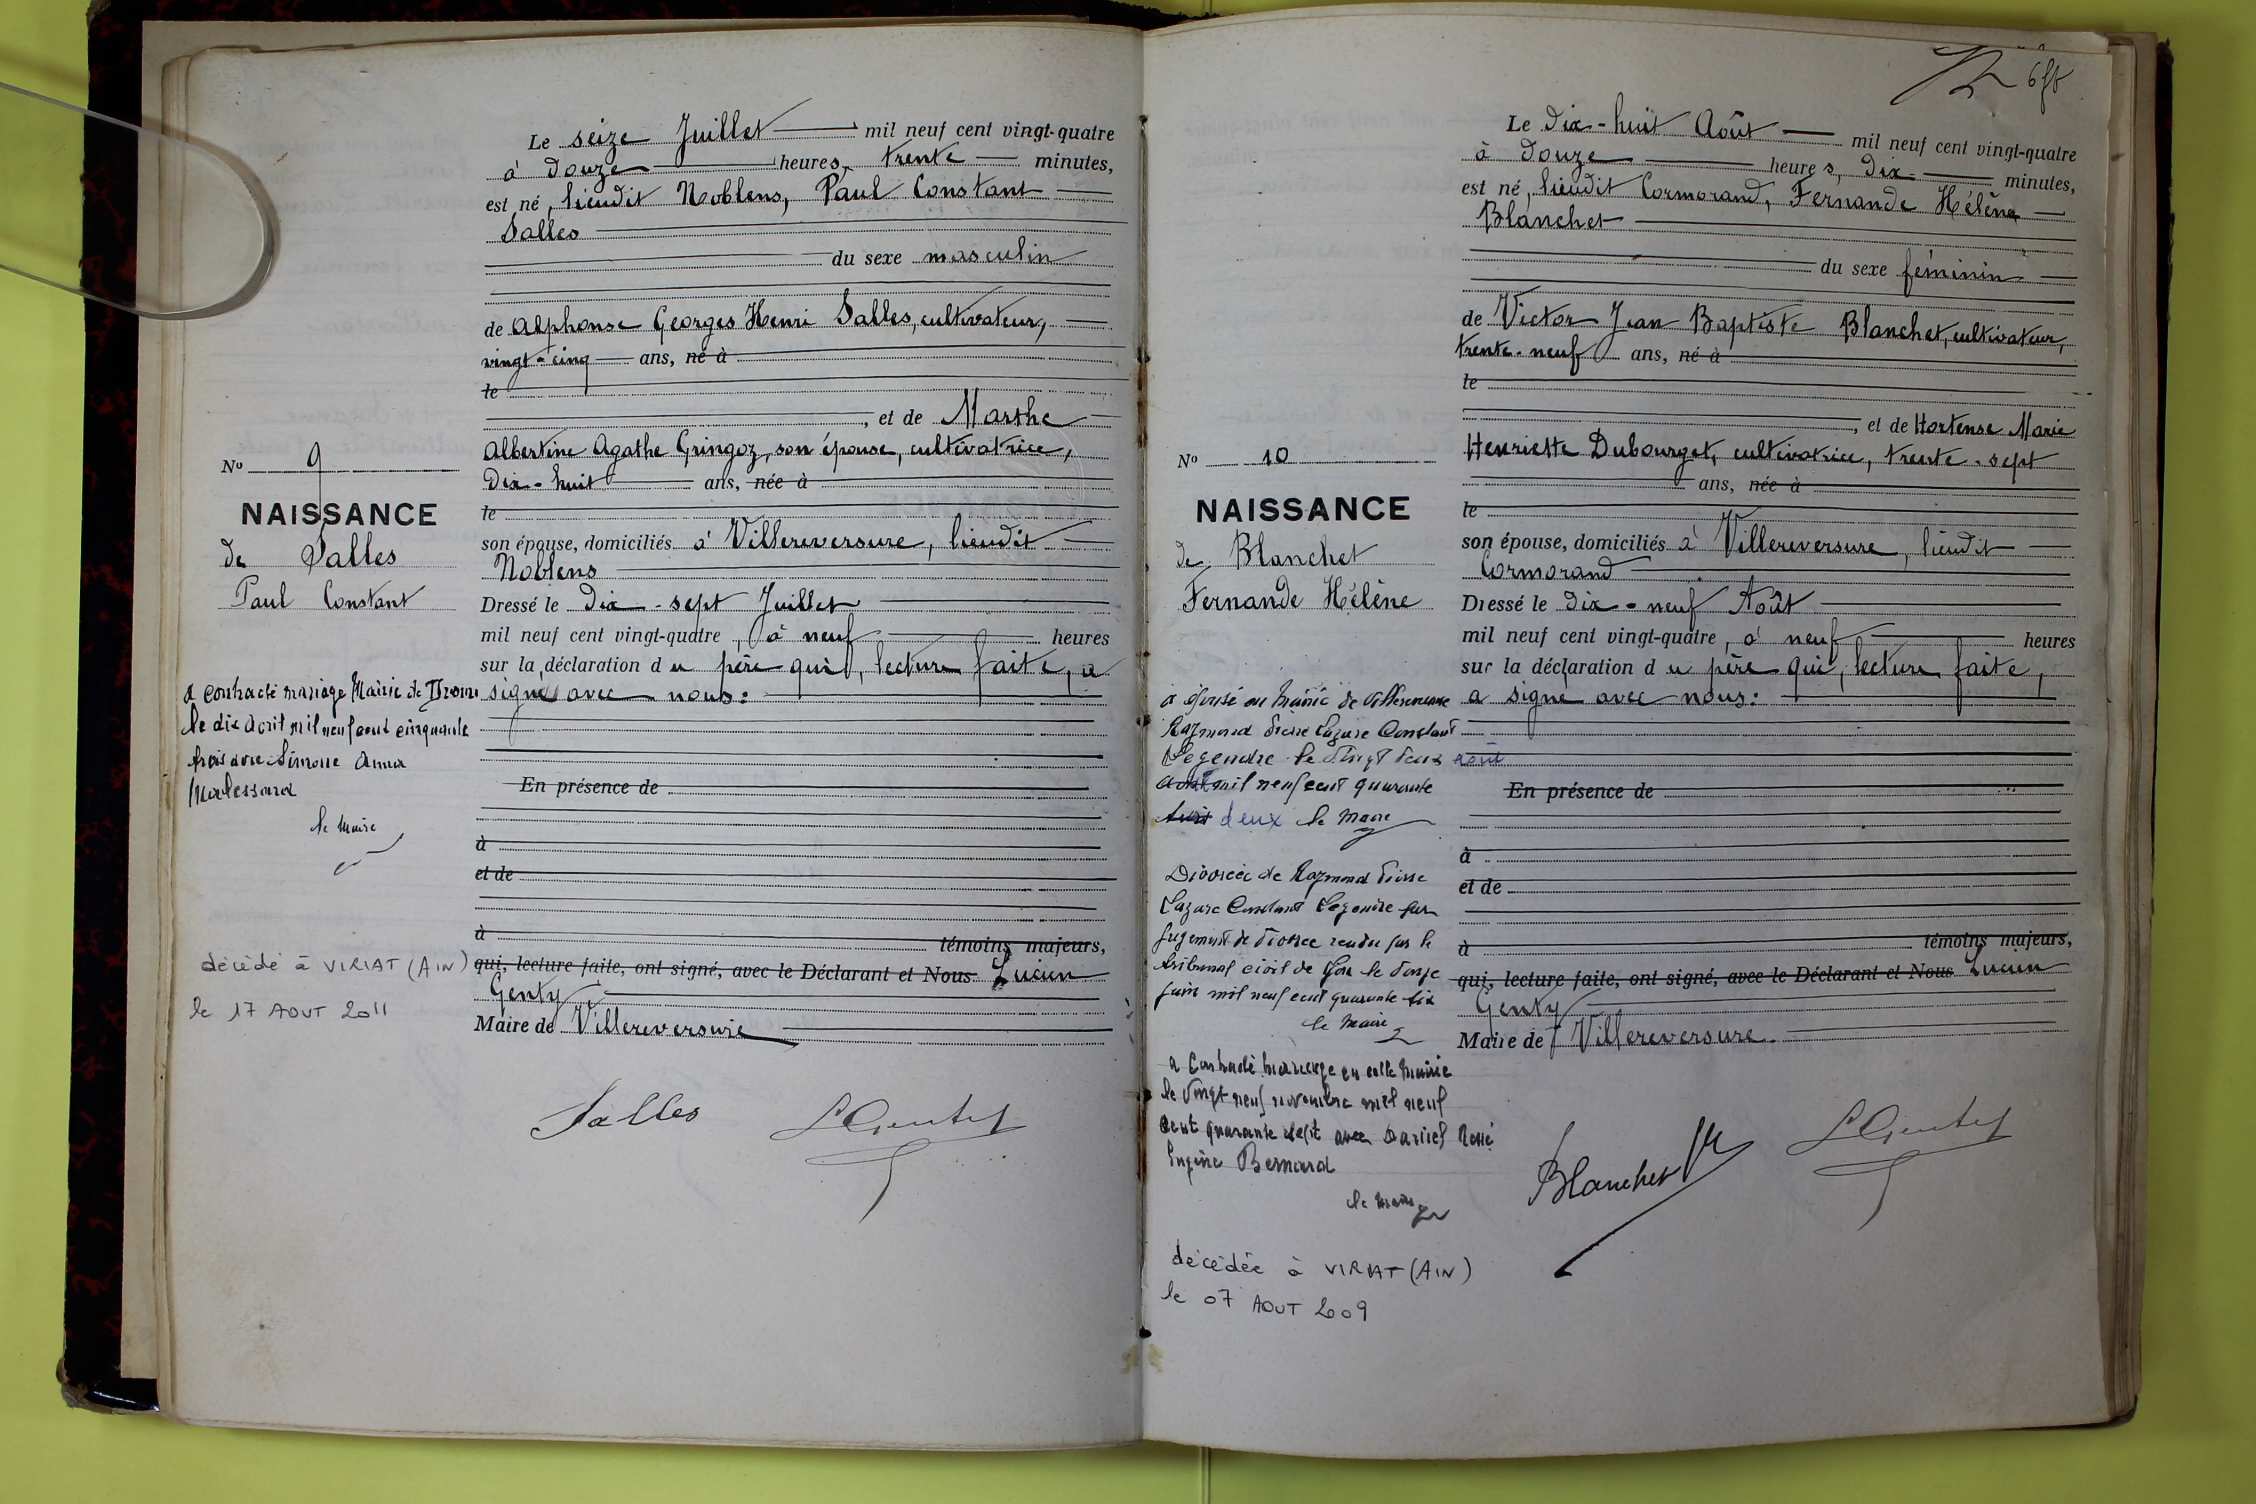 Le seize Juillet mil neuf cent vingt-quatre
à douze heures, trente minutes,
est né, lieudit Noblens, Paul Constant
Salles
du sexe masculin
de Alphonse Georges Henri Salles, cultivateur,
vingt-cinq ans, né à
le
, et de Marthe
Albertine Agathe Gringoz, son épouse, cultivatrice,
dix-huit ans, née à
le
son épouse, domiciliés à Villereversure, lieudit
Noblens
Dressé le dix-sept Juillet
mil neuf cent vingt-quatre, à neuf heures
sur la déclaration du père qui, lecture faite, a
signé avec nous:
En présence de
à
et de
à témoins majeurs,
qui, lecture faite, ont signé, avec le Déclarant et Nous Lucien
Genty
Maire de Villereversure
Salles
LGenty
No 9
NAISSANCE
de Salles
Paul Constant
a contracté mariage Mairie de
le dix avril mil neuf cent cinquante
trois avec Simone Anna
le Maire
décédé à VIRIAT (AIN)
le 17 AOUT 2011
Le dix-huit Août mil neuf cent vingt-quatre
à douze heures, dix minutes,
est né, lieudit Cormorand, Fernande Hélène
Blanchet
du sexe féminin
de Victor Jean Baptiste Blanchet, cultivateur,
trente-neuf ans, né à
le
, et de Hortense Marie
Henriette Dubourget, cultivatrice, trente-sept
ans, née à
le
son épouse, domiciliés à Villereversure, lieudit
Cormorand
Dressé le dix-neuf Août
mil neuf cent vingt-quatre, à neuf heures
sur la déclaration du père qui, lecture faite,
a signé avec nous:
En présence de
à
et de
à témoins majeurs,
qui, lecture faite, ont signé, avec le Déclarant et Nous Lucien
Genty
Maire de Villereversure
Blanchet
LGenty
No 10
NAISSANCE
de Blanchet
Fernande Hélène
a épousé en Mairie de Villereversure
Raymond Pierre Lazare Constant
Legendre le vingt deux août
août mil neuf cent quarante
trois deux le Maire
Divorcée de Raymond Pierre
Lazare Constant Legendre par
jugement de divorce rendu par le
tribunal civil de le
juin mil neuf cent quarante six
le Maire
a contracté mariage en cette Mairie
le vingt neuf novembre mil neuf
cent quarante sept avec Daniel René
Eugène Bernard
le Maire
décédée à VIRIAT (AIN)
le 07 AOUT 2009